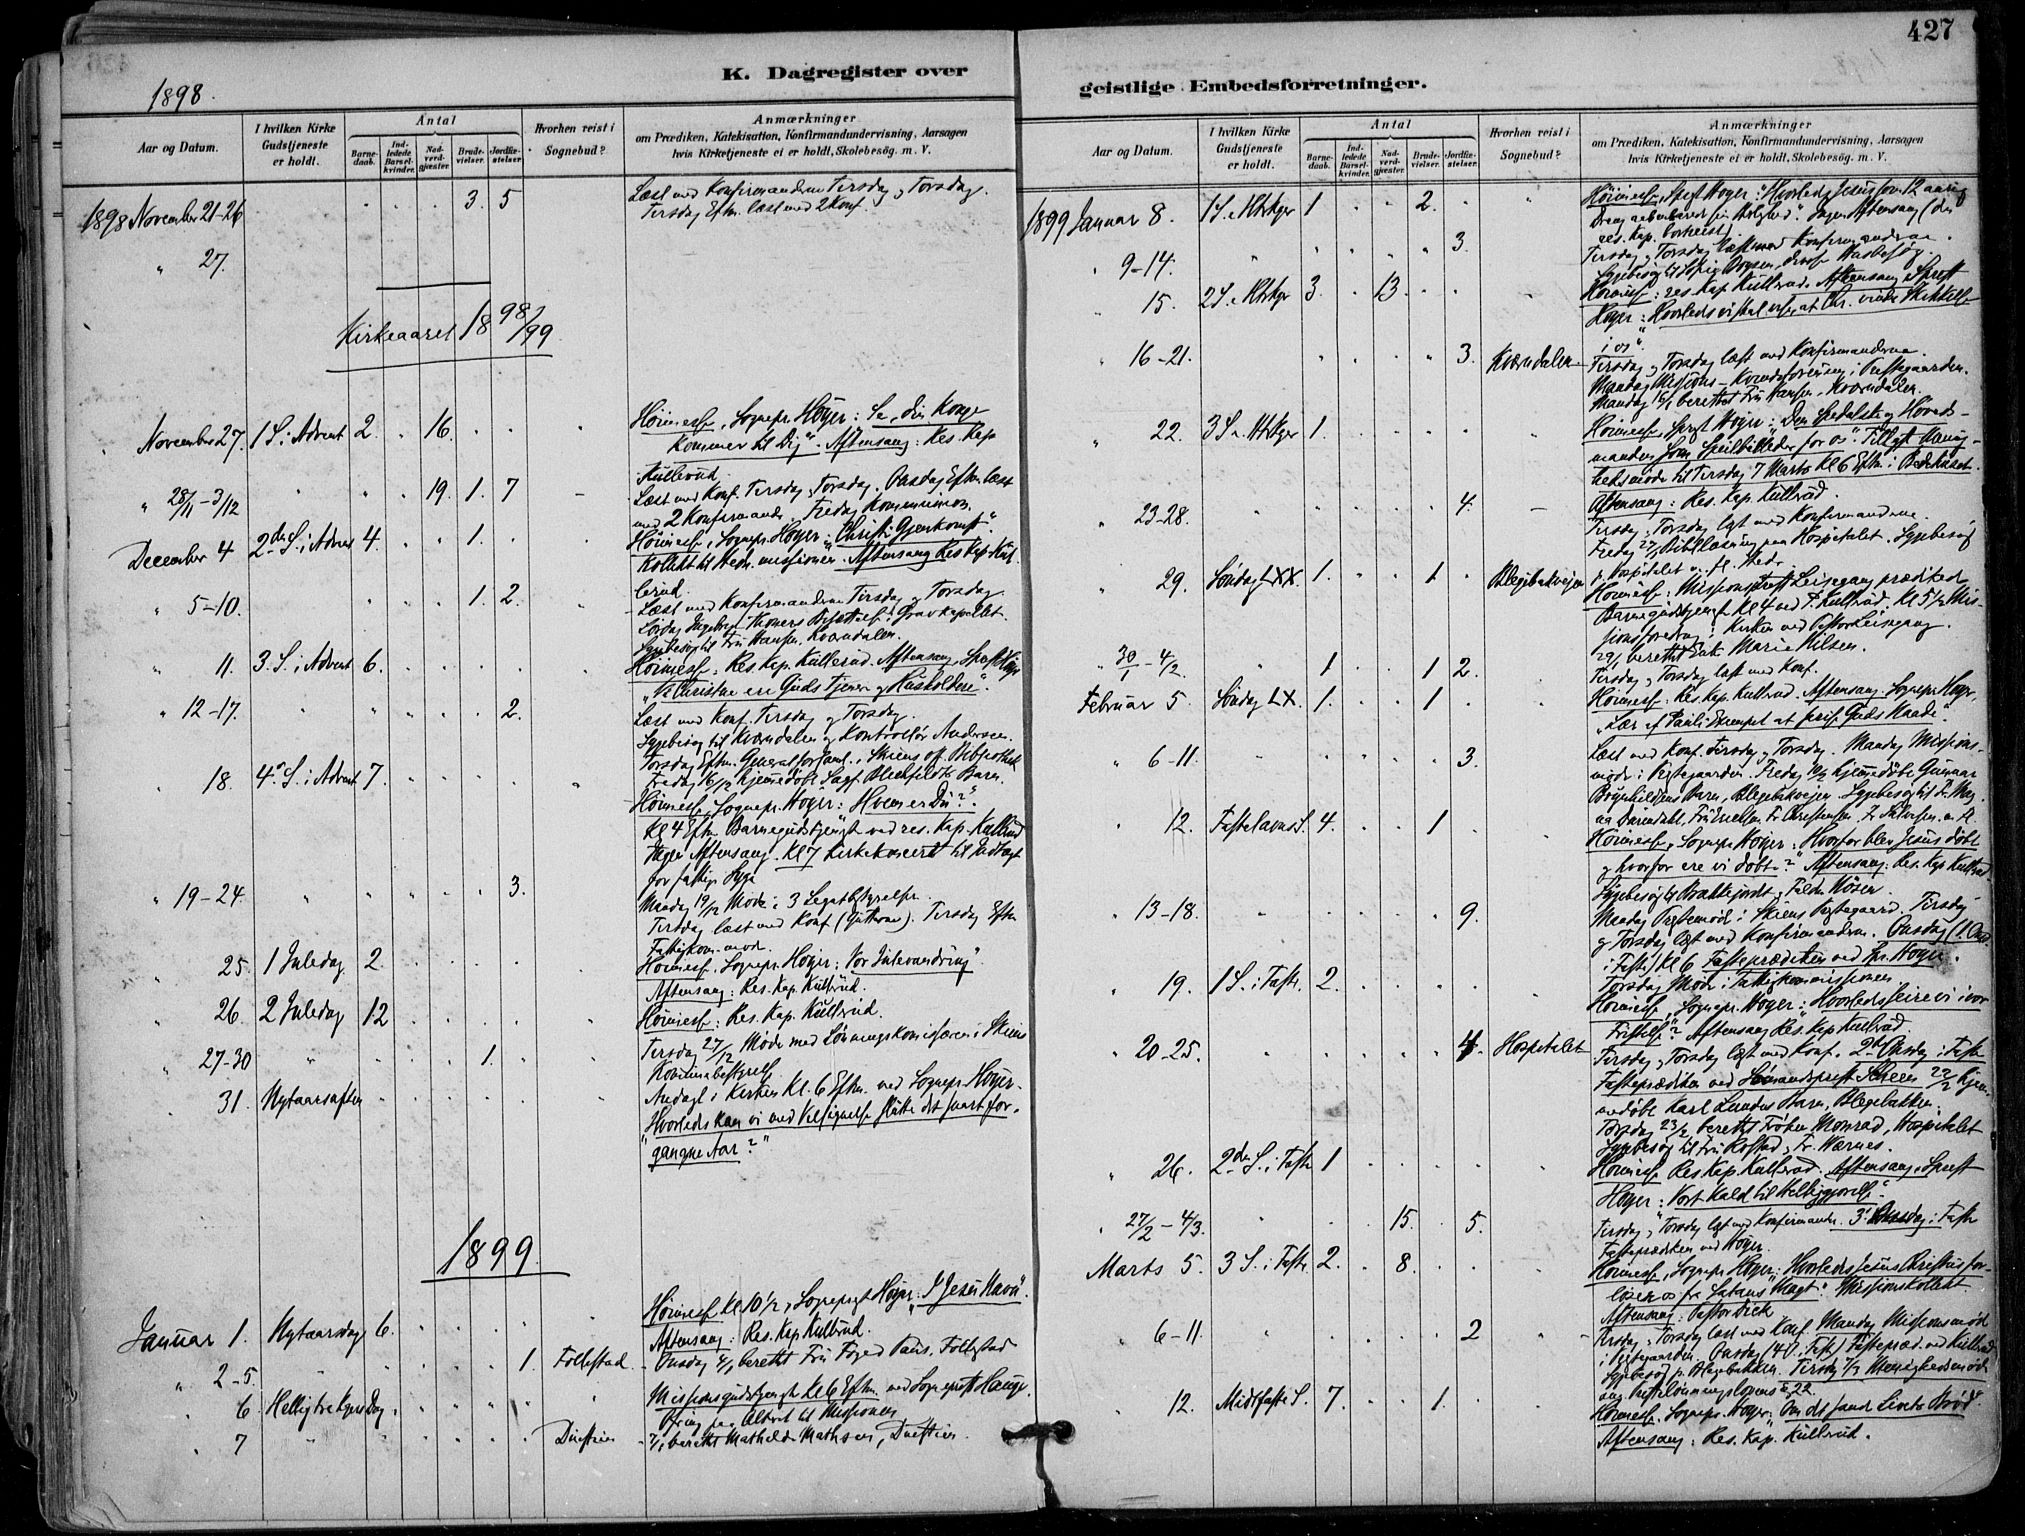 427
K. Dagregister over
geistlige Embedsforretninger.
1898.
Aar og Datum.
I hvilken Kirke Gudstjeneste er holdt.
Antal
Barnedaab.
Indledede Barselkvinder.
Nadverdgjester.
Brudevielser.
Jordfæstelser.
Hvorhen reist i Sognebud?
Anmærkninger
om Prædiken, Katekisation, Konfirmandundervisning, Aarsagen
hvis Kirketjeneste ei er holdt, Skolebesøg. m. V.
1898 November 21-26 3. 5 Læst med Konfirmanderne Tirsdag og Torsdag.
Tirsdag Efm. læst med 2 Konf.
" 27.
Kirkeaaret 1898/99
November 27. 1 S. i Advent 2. 16. Høimesse, Sognepr. Høyer: Se, din Konge
kommer til Dig". Aftensang: Res. Kap.
Kullerud.
" 28/11-3/12 19. 1. 7 Læst med Konf. Tirsdag, Torsdag. Onsdag Efm. læst
med 2 Konfirmander. Fredag Kommunion.
December 4 2den S. i Advent 4. 1. Høimesse, Sognepr. Høyer: "Christi Gjenkomst".
Kollekt til Hedn. missionen. Aftensang Res Kap. Kul-
lerud.
" 5-10. 1. 2. Læst med Konfirmanderne Tirsdag og Torsdag
Sygebesøg til Fru Hansen, Kværndalen.
" 11. 3. S. i Advent 6. Høimesse: Res. Kap. Kullerud. Aftensang, Sprest Høyer
"En Christen en Guds Tjener og Husholder".
" 12-17. 2. Læst med Konf. Tirsdag og Torsdag.
Sygebesøg til Kværndalen og Kontrollør Andersen.
Torsdag Efm. Generalforsaml. i Skiens off. Bibliothek
Fredag 16/12 hjemmedøbt Sagf. Blehfeldts Barn.
" 18. 4de S. i Advent 7. Høimesse, Sognepr. Høyer: Hvem er Du?".
Kl 4 Efm. Barnegudstjeneste ved res. Kap. Kullerud
Ingen Aftensang. Kl 7 Kirkekoncert til Indtægt
for fattige Syge
" 19-24. 3. Mandag 19/12 Møde i 3 Legatbestyrelser.
Tirsdag læst med Konf (Gutterne). Tirsdag Efm
Fattigkom. møde.
" 25. 1 Juledag 2. Høimesse, Sognepr. Høyer: Vor Julevandring"
Aftensang: Res. Kap. Kullerud.
" 26. 2 Juledag 12 Høimesse: Res. Kap. Kullerud.
" 27-30 1. Tirsdag 27/12 Møde med Lønningskomiteen i Skiens
Kommunebestyrelse
" 31. Nytaarsaften Andagt i Kirken Kl. 6 Efm. ved Sognepr. Høyer.
"Hvorledes kan vi med Velsignelse slutte det snart for-
gangne Aar?"
1899.
Januar 1. Nytaarsdag 6. Høimesse Kl 10 1/2, Sogneprest Høyer: "I Jesu Navn".
Aftensang: Res. Kap. Kullerud.
" 2-5. 1. Follestad. Onsdag 4/1 berettet Fru Foged Paus. Follestad
" 6 Hellig tre Kgers Dag. Missionsgudstjeneste Kl 6 Efm. ved Sogneprest Hauge.
Offring paa Altret til Missionen
" 7 Duestien 7/1 berettet Mathilde Mathsen, Duestien.
Aar og Datum.
I hvilken Kirke Gudstjeneste er holdt.
Antal
Barnedaab.
Indledede Barselkvinder.
Nadverdgjester.
Brudevielser.
Jordfæstelser.
Hvorhen reist i Sognebud?
Anmærkninger
om Prædiken, Katekisation, Konfirmandundervisning, Aarsagen
hvis Kirketjeneste ei er holdt, Skolebesøg. m. V.
1899 Januar 8. 1 S. e. Htrkger 1 2. Høimesse, Sprest Høyer: "Hvorledes Jesus som 12 aarig
Dreng aabenbarede sin Herlighed". Ingen Aftensang (den
res. Kap. bortreist).
" 9-14. 3. Tirsdag og Torsdag læst med Konfirmanderne.
" 15. 2 S. e. Htrkger 3. 13. Høimesse: res. Kap. Kullerud. Aftensang, Sprest
Høyer:
i os".
" 16-21. 3. Kværndalen Tirsdag og Torsdag læst med Konfirmanderne.
Mandag Missions-Kvindeforening i Prestegaarden.
Mandag berettet Fru Hansen, Kværndalen.
" 22. 3 S. e. Htrkger 1. Høimesse, Sprest Høyer: Den Spedalske og Høveds-
manden som Speilbilleder for os". Tillyst Menig-
hedsmøde til Tirsdag 7 Marts Kl 6 Efm. i Bedehuset.
Aftensang: Res. Kap. Kullerud.
" 23-28. 4. Tirsdag, Torsdag læst med Konfirmanderne.
Fredag 27/1 Bibellæsning paa Hospitalet. Sygebesøg
p. Hospitalet o. fl. Steder.
" 29. Søndag LXX. 1. 1 Blegebakveien Høimesse: Missionsprest Leisegang prædiked.
Barnegudstjeneste Kl 4 ved P. Kullerud. Kl 5 1/2 Mis-
sionsforedrag i Kirken ved Pastor Leisegang.
29/1 berettet Enke Marie Nilsen.
" 30/1-4/2 1 1 2. Tirsdag og Torsdag læst med Konf.
Februar 5. Søndag LX. 1. 1 Høimesse: Res. Kap. Kullerud. Aftensang: Sognepr. Høyer,
"Lær af Pauli Exempel at prise Guds Naade".
" 6-11. 3. Læst med Konf. Tirsdag og Torsdag. Mandag Missions-
møde i Prestegaarden. Fredag 10/2 hjemmedøbt Gunnar
Brynhildsens Barn, Blegebakveien.
" 12. Fastelavns S. 4. 1 Høimesse, Sognepr. Høyer: Hvorfor blev Jesus døbt
og hvorfor ere vi døbte?" Aftensang: Res. Kap. Kullerud.
" 13-18. 9. Mandag Prestemøde i Skiens Prestegaard. Tirsdag
og Torsdag læst med Konfirmanderne. Onsdag (1. Onsd.
i Faste) Kl 6 Fasteprædiken ved Spr. Høyer.
Torsdag Møde i Fattigkommissionen
" 19. 1 S. i Faste. 2. Høimesse, Sognepr. Høyer: "Hvorledes seire vi i vor
Fristelse?" Aftensang Res. Kap. Kullerud.
" 20-25. 4. Hospitalet Tirsdag, Torsdag læst med Konf. 2den Onsdag i Faste
Fasteprædiken ved Sømandsprest Scheen 22/2 hjem-
medøbt Karl Lundes Barn, Blegebakken.
Torsdag 23/2 berettet Frøken Monrad, Hospitalet
Sygebesøg til Fru Rostad, Fr. Wærnes.
" 26. 2den S. i Faste 1 Høimesse Res. Kap. Kullerud. Aftensang, Sprest
Høyer: "Vort Kald til Helliggjørelse".
" 27/2-4/3. 15. 5. Tirsdag, Torsdag læst med Konfirmander. 3. Onsdag i Faste
Fasteprædiken ved Høyer.
Marts 5. 3 S. i Faste. 2. 8. Høimesse, Sognepr. Høyer: "Hvorledes Jesus Christus for-
løser os fra Satans Magt". Missionskollekt.
Aftensang: Pastor Dick
" 6-11. 2 Tirsdag, Torsdag læst med Konf. Mandag Missionsmøde
i Prestegaarden. Onsdag (4 O. i Faste) Fastepræd. ved Kullerud
Sygebesøg p. Blegebakken. Tirsdag 7/3 Menighedsmøde
ang. Presteløningslovens § 22.
" 12. Midfaste S. 7. 1. Høimesse. Sognepr. Høyer, "Om det sande Livets Brød".
Aftensang: Res. Kap. Kullerud.